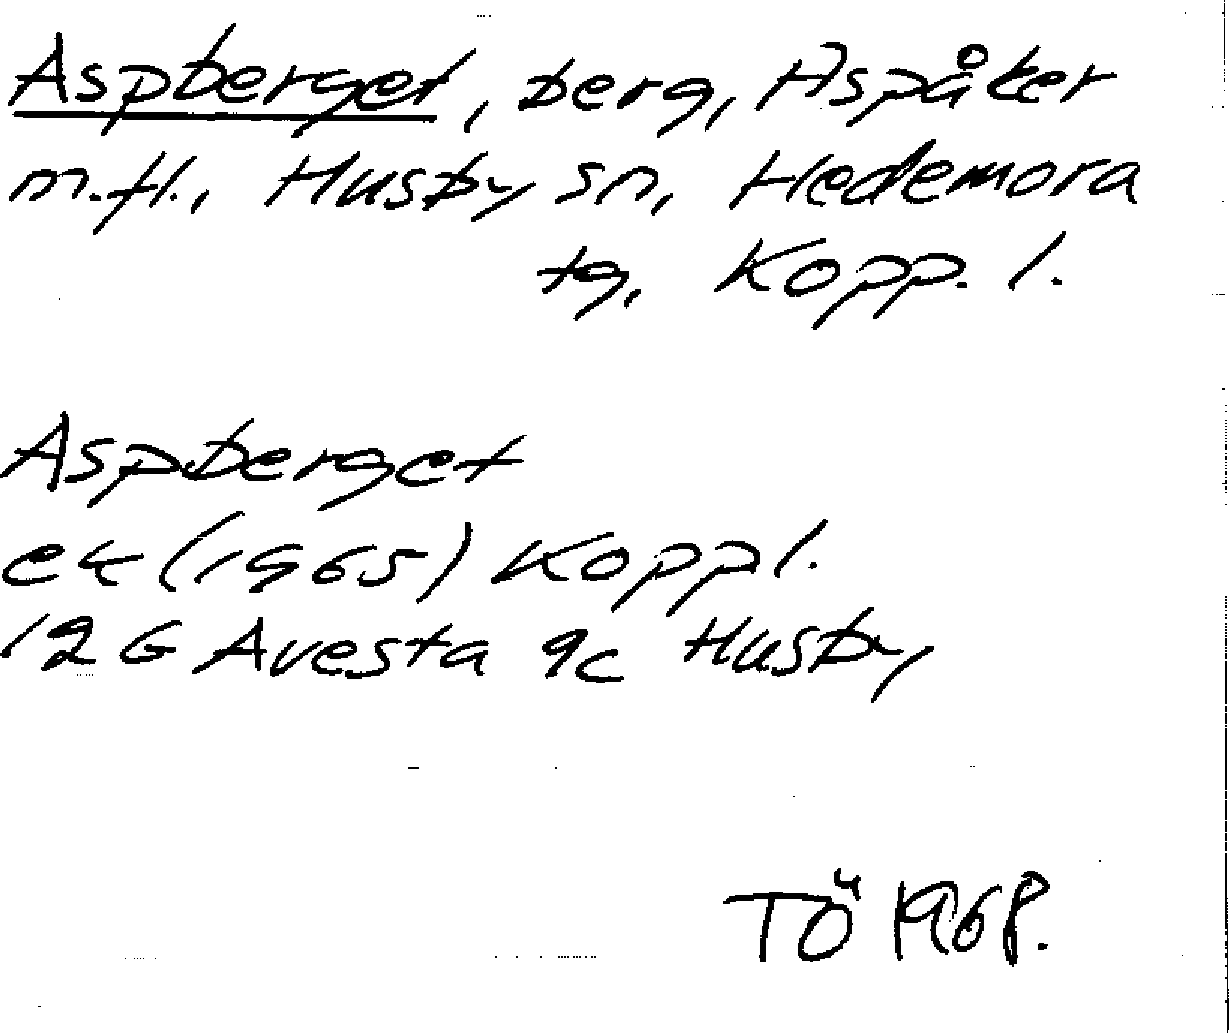 Aspberget, berg, Aspåker
m.fl., Husby sn, Hedemora
tg, Kopp. l.
Aspberget
ek (1965) Kopp l.
12 G Avesta 9c Husby
TÖ 1968.